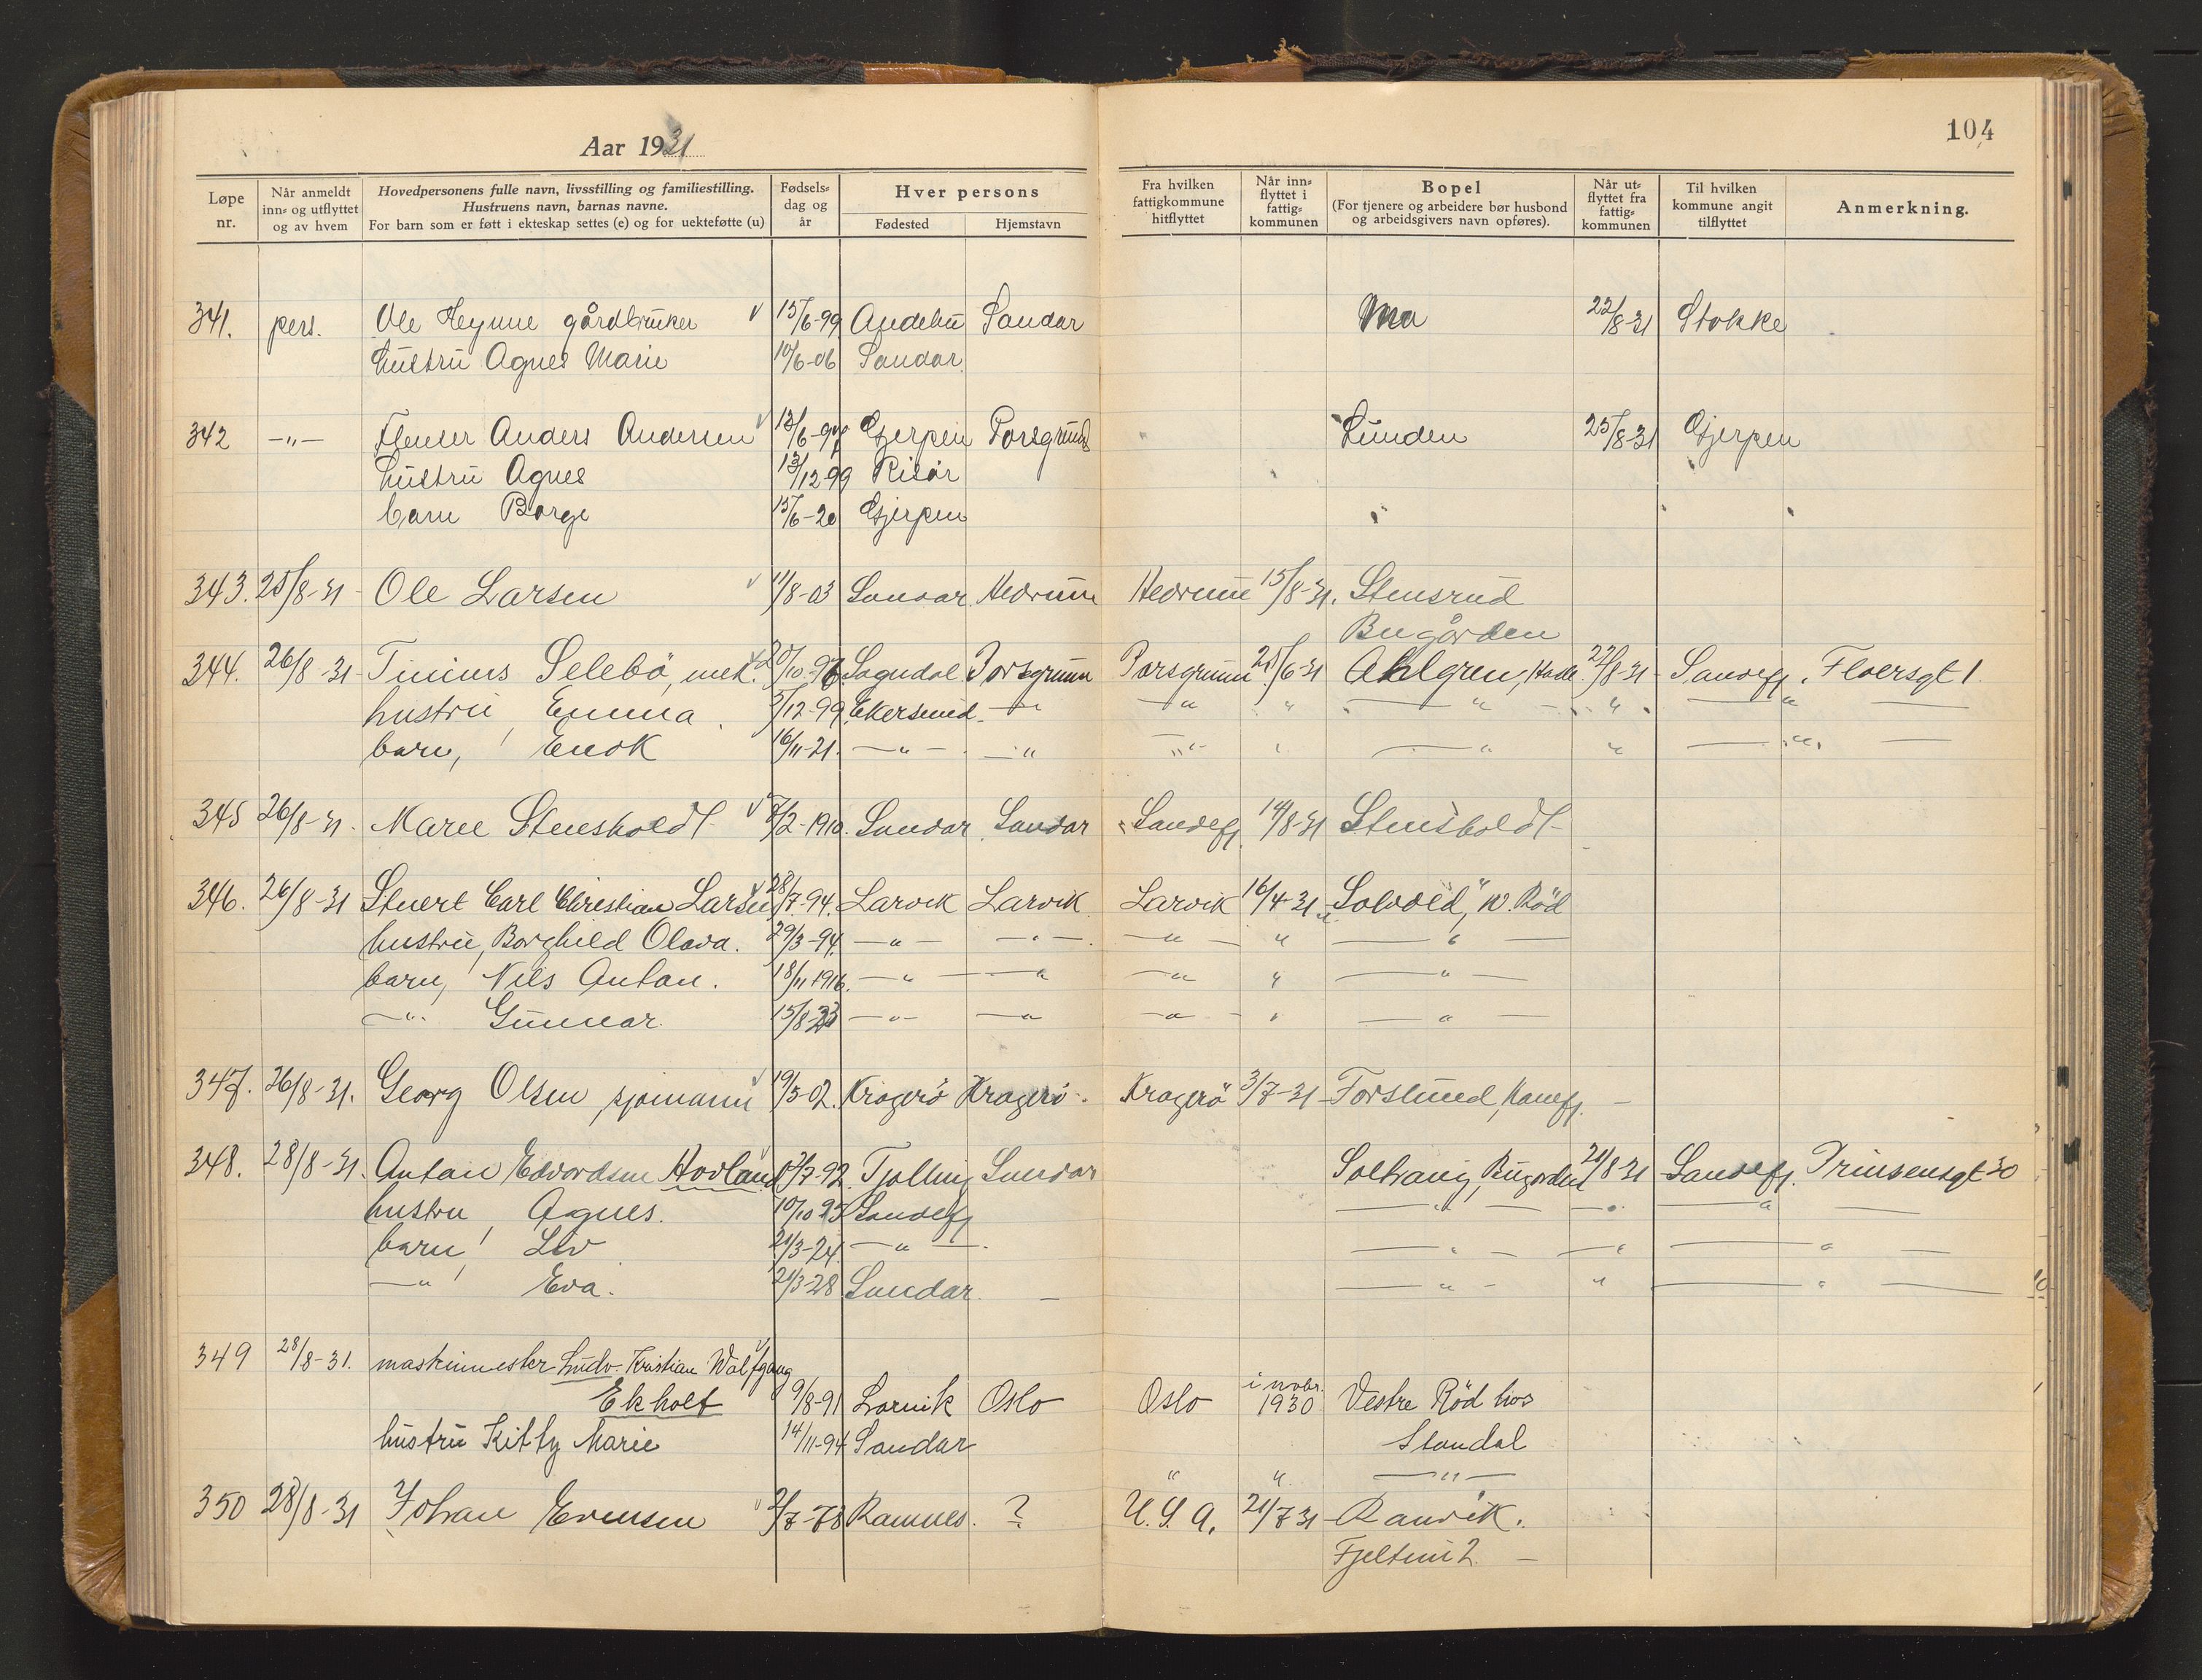 104
Aar 1931
Løpe nr. | Når anmeldt inn- og utflyttet og av hvem | Hovedpersonens fulle navn, livsstilling og familiestilling. Hustruens navn, barnas navne. For barn som er født i ekteskap settes (e) og for uekteføtte (u) | Fødsels- dag og år | Hver persons Fødested | Hjemstavn | Fra hvilken fattigkommune hitflyttet | Når inn- flyttet i fattig- kommunen | Bopel (For tjenere og arbeidere bør husbond og arbeidsgivers navn opføres). | Når ut- flyttet fra fattig- kommunen | Til hvilken kommune angit tilflyttet | Anmerkning.
341. pers. Ole gårdbruker 15/6-99 Andebu Sandar 22/8-31 Stokke
hustru Agnes Marie 10/6-06 Sandar
342 -"- Flenser Anders Andersen Gjerpen Porsgrund Lunden 25/8-31 Gjerpen
hustru Agnes 13/12 99 Risör
barn Borge 15/6-20 Gjerpen
343. 25/8-31 Ole Larsen 11/8-03 Sandar Hedrum Hedrum 15/8-31. Stensrud
Bugården
344. 26/8-31 Tinius Selebö, mek. Sogndal Porsgrunn Porsgrunn 25/6-31 Ahlgren, 27/8-31 Sandefj. Floersgt 1
hustru Emma 5/12-99 Ekersund -"- -"- " -"- " -"-
barn, Enok 16/11-21. -"- -"- -"- " -"- " -"-
345 26/8-31. Marie Stensholdt 7/2-1910. Sandar Sandar Sandefj. 14/8-31 Stensholdt
346. 26/8-31 Stuert Carl Christian Larsen 28/7-94. Larvik Larvik Larvik 16/4-31 "Solvold", N. Röd
hustru, Borghild Olava. 29/3-94. -"- -"- -"- " -"-
barn, Nils Anton. 18/11 1916. -"- -"- -"- " -"-
-"- Gunnar 15/8-23 -"- -"- -"- " -"-
347. 26/8-31. Georg Olsen, sjømann 19/5-02. Kragerö Kragerö. Kragerö 3/7-31 Forslund,
348. 28/8-31. Anton Edvardsen Hovland 7-92. Tjølling Sandar Solhaug, Bugården 21/8-31 Sandefj. Prinsensgt 30
hustru, Agnes. 10/10 93 Sandefj -"- -"- -"-
barn, Liv 21/3-24. -"- -"- -"- -"-
-"- Eva. 21/3-28 Sandar. -"- " -"-
349 28/8-31. maskinmester Ludv. Kristian Wolfgang
Ekholt 9/8-91 Larvik Oslo Oslo i nobr. 1930 Vestre Röd hos
hustru Kitty Marie 14/11-94 Sandar Standal
" " -"-
350 28/8-31 Johan Evensen 2/7-78 Ramnes. ? U.S.A. 21/7 31 Ranvik.
Fjeltun 2.